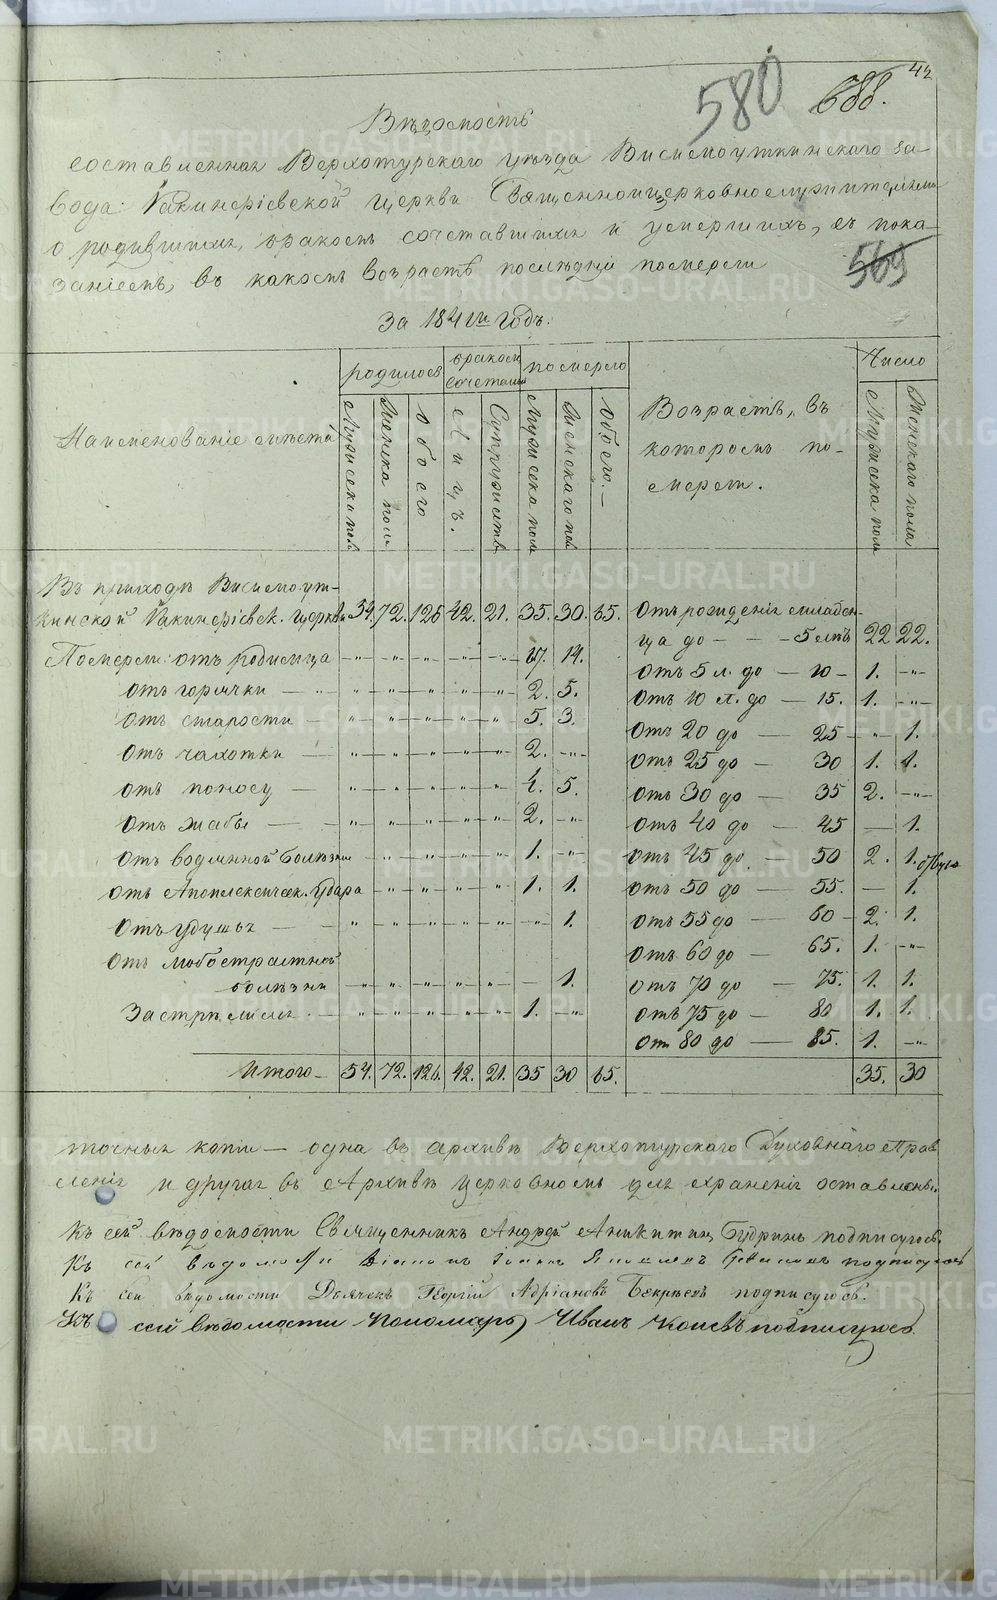 42
580 688.
Вѣдомость
составленная Верхотурскаго уѣзда Висимоуткинскаго за-
вода Іакинфіевской церкви Священноицерковнослужителями
о родившихся, бракомъ сочетавшихся и умершихъ, съ пока-
заніемъ, въ какомъ возрастѣ послѣдніе померли
569
За 1841й годъ.
Наименованіе мѣста
родилось
бракомъ сочетались
померло
Возрастъ, въ которомъ по-
мерли.
Число
Мужеска пол
Женска пол
Обоего
Лицъ.
Супружествъ
Мужеска пол
Женскаго пол
Обоего.
Мужеска пол
Женскаго пола
Въ приходѣ Висимоут-
кинской Іакинфіевск. церкви 54. 72. 126 42. 21. 35. 30. 65. Отъ рожденія младен-
ца до - - - 5 лѣтъ 22 22.
Померли: отъ родимца - " - " - " - " - " 17. 14.
отъ 5 л. до - 10 - 1. - " -
отъ горячки - " - " - " - " - " 2. 5.
отъ 10 л. до - 15. 1. - " -
отъ старости - " - " - " - " - " 5. 3.
отъ 20 до - 25 - " - 1.
отъ чахотки - " - " - " - " - " 2. - " -
отъ 25 до - 30 1. 1.
отъ поносу - " - " - " - " - " 4. 5.
отъ 30 до - 35 2. - " -
отъ жабы - " - " - " - " - " 2. - " -
отъ 40 до - 45 - 1.
отъ водянной болѣзни - " - " - " - " - " 1. - " -
отъ 45 до - 50 2. 1.
отъ Апоплексическ. удара - " - " - " - " 1. 1.
отъ 50 до - 55. - 1.
отъ удушья - " - " - " - " - " - " - 1.
отъ 55 до - 60 - 2. 1.
отъ любострастной
болѣзни - " - " - " - " - " - 1.
отъ 60 до - 65. 1. - " -
отъ 70 до - 75. 1. 1.
Застрѣлился - " - " - " - " - " 1. - " -
отъ 75 до - 80 1. 1.
отъ 80 до - 85. 1. - " -
Итого - 54. 72. 126. 42. 21. 35 30 65. 35. 30
точныя копіи - одна въ архивѣ Верхотурскаго Духовнаго Прав
ленія и другая въ Архивѣ церковномъ для храненія оставлены.
Къ сей вѣдомости Священникъ Андрей Аникитинъ Будринъ подписуюсь.
Къ сей вѣдомости Діаконъ Іоаннъ подписуюсь
Къ сей вѣдомости Дьячекъ Георгій Адріановъ подписуюсь.
Къ сей вѣдомости Пономарь Иванъ Коневъ подписуюсь.
METRIKI.GASO-URAL.RU